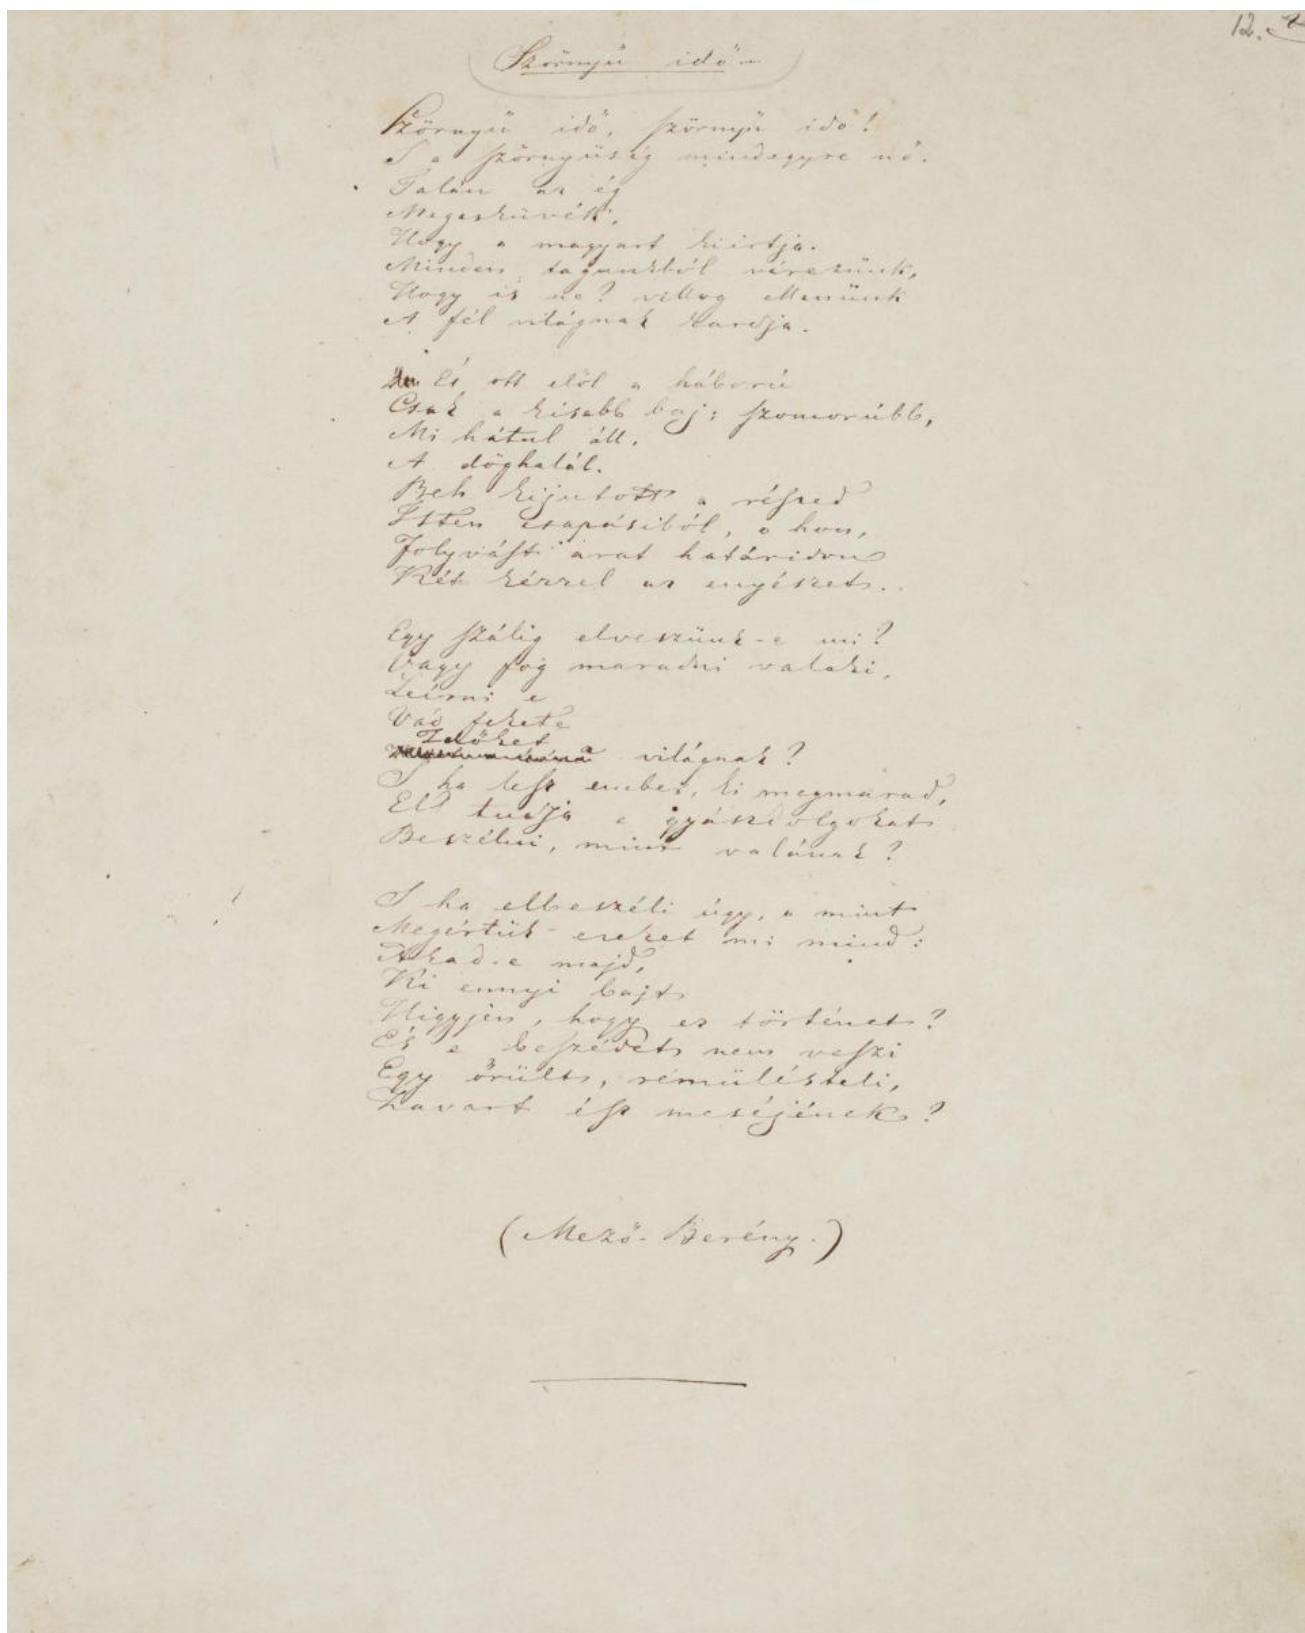 12.
Szörnyü idő..
Szörnyü idő, szörnyü idő!
S a szörnyüség mindegyre nő.
Talán az ég
Megesküvék,
Hogy a magyart kiirtja.
Minden tagunkból vérezünk,
Hogy is ne? villog ellenünk
A fél világnak kardja.
És ott elöl a háború
Csak a kisebb baj; szomorúbb,
Mi hátul áll,
A döghalál.
Beh kijutott a részed
Isten csapásiból, o hon,
Folyvást arat határidon
Két kézzel az enyészet..
Egy szálig elveszünk-e mi?
Vagy fog maradni valaki,
Leirni e
Vad fekete
Időket
a világnak?
S ha lesz ember, ki megmarad,
El tudja e gyászdolgokat
Beszélni, mint valának?
S ha elbeszéli úgy, a mint
Megértük ezeket mi mind:
Akad-e majd,
Ki ennyi bajt
Higyjen, hogy ez történet?
És e beszédet nem veszi
Egy őrült, rémülésteli,
Zavart ész meséjének?
(Mező-Berény.)